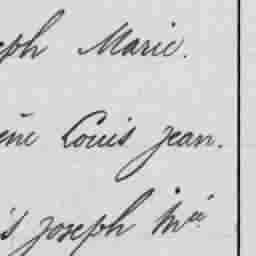 eph Marie.
ène Louis jean.
is joseph Mie